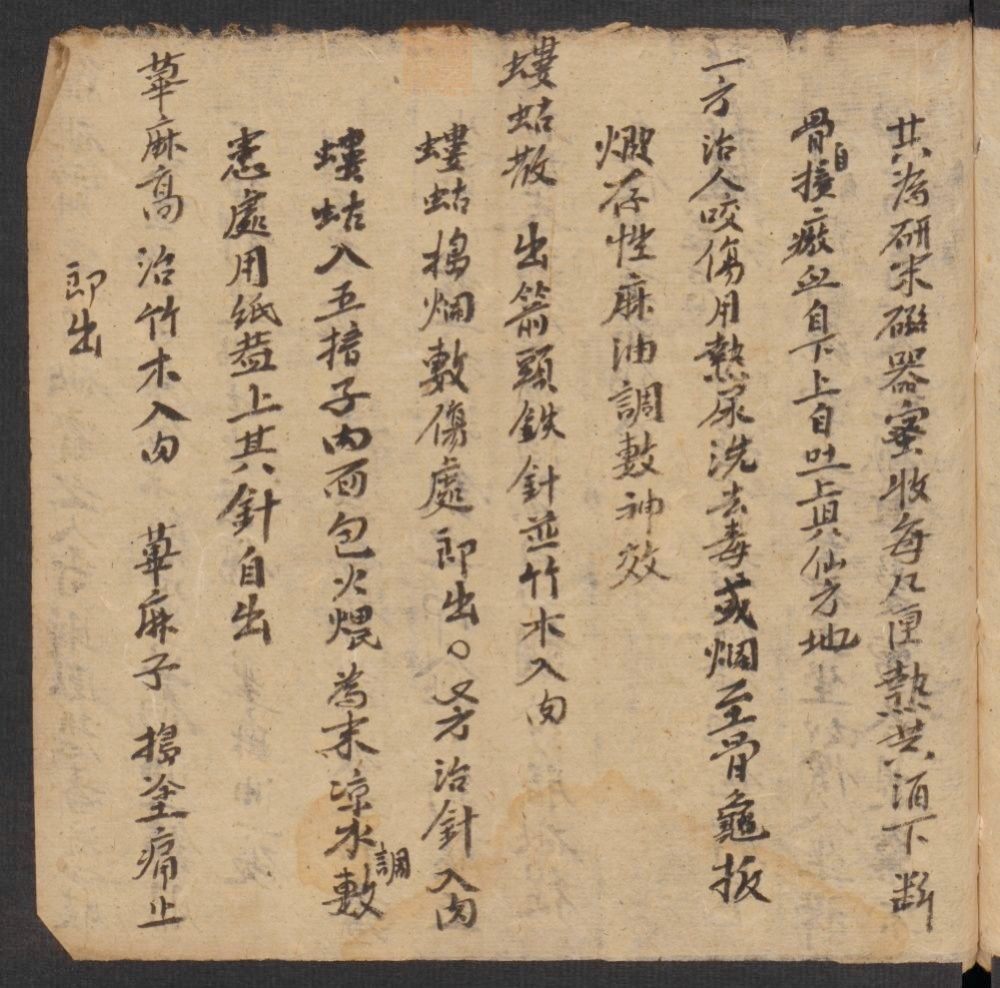 共為研末磁器蜜收每八厘熱黃酒下斷
骨自接瘀血自下上自吐真仙方地
一方治人咬傷用熱尿洗去毒或爛至骨龜板
煅存性麻油調敷神效
螻蛄散 出箭頭鉄針並竹木入肉
螻蛄搗爛敷傷處即出○又方治針入肉
螻蛄入五捨子內面包火煨為末凉水調敷
患處用紙盖上其針自出
萆麻膏治竹木入肉 萆麻子搗塗痛止
即出